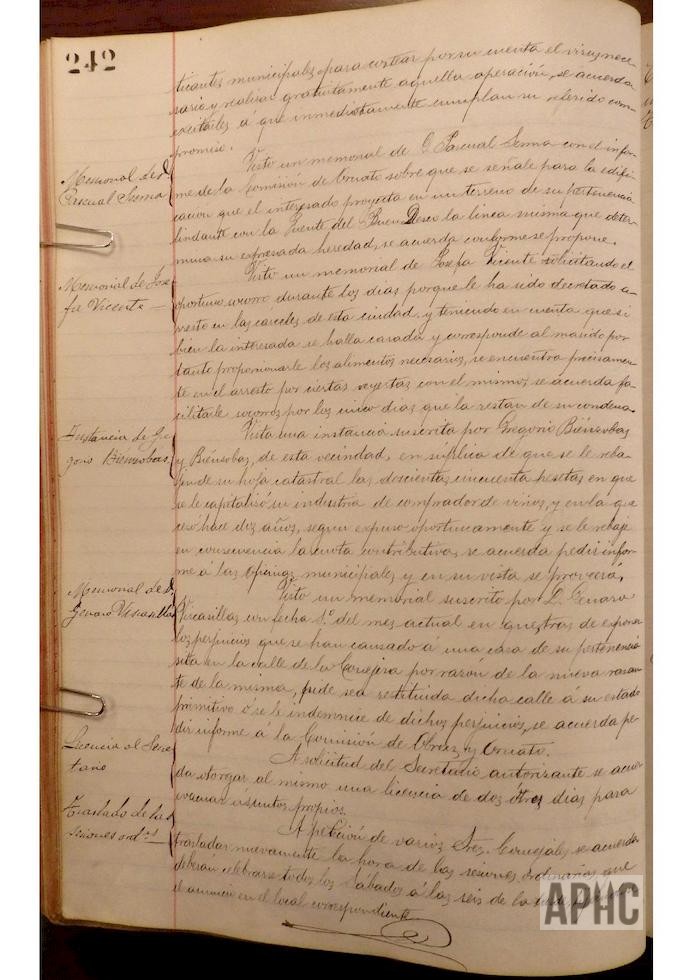 242
ticantes municipales, para costear por su cuenta el virus nece-
sario y realizar gratuitamente aquella operación, se acuerda
excitarles á que inmediatamente cumplan su referido com-
promiso.
Memorial de D.
Pascual Serma
Visto un memorial de D. Pascual Serma con el infor-
me de la Comisión de Ornato sobre que se señale para la edifi-
cacion que el interesado proyecta en un terreno de su pertenencia
lindante con la Fuente del Buen Deseo la linea misma que deter-
mina su expresada heredad, se acuerda conforme se propone.
Memorial de Jose-
fa Vicente
Visto un memorial de Josefa Vicente solicitando el
oportuno socorro durante los dias porque le ha sido decretado a-
rresto en las cárceles de esta ciudad, y teniendo en cuenta que si
bien la interesada se halla casada y corresponde al marido por
tanto proporcionarle los alimentos necesarios, se encuentra precisamen-
te en el arresto por ciertas reyertas con el mismo, se acuerda fa-
cilitarle socorros por los cinco dias que la restan de su condena.
Instancia de Gre-
gorio Biensobas
Vista una instancia suscrita por Gregorio Biénsobas
y Biénsobas, de esta vecindad, en súplica de que se le reba
jen de su hoja catastral las doscientas cincuenta pesetas en que
se le capitalizó su industria de comprador de vinos, y en la que
cesó hace dos años, segun expuso oportunamente y se le rebaje
en consecuencia la cuota contributiva, se acuerda pedir infor-
me á las oficinas municipales y en su vista se proveerá.
Memorial de D.
Genaro Vircasillas
Visto un memorial suscrito por D. Genaro
Vircasillas con fecha 1º. del mes actual en que tras de exponer
los perjuicios que se han causado á una casa de su pertenencia
sita en la calle de la Conejera por razón de la nueva rasan-
te de la misma, pide sea restituida dicha calle á su estado
primitivo ó se le indemnice de dichos perjuicios, se acuerda pe-
dir informe a la Comisión de Obras y Ornato.
Licencia al Secre-
tario
A solicitud del Secretario autorizante se acuer
da otorgar al mismo una licencia de dos ó tres dias para
evacuar asuntos propios.
Traslado de las
sesiones ord.as
A petición de varios Sres. Concejales se acuerda
trasladar nuevamente la hora de las sesiones ordinarias, que
deberán celebrarse todos los Sábados á las seis de la tarde,
el anuncio en el local correspondiente
APHC